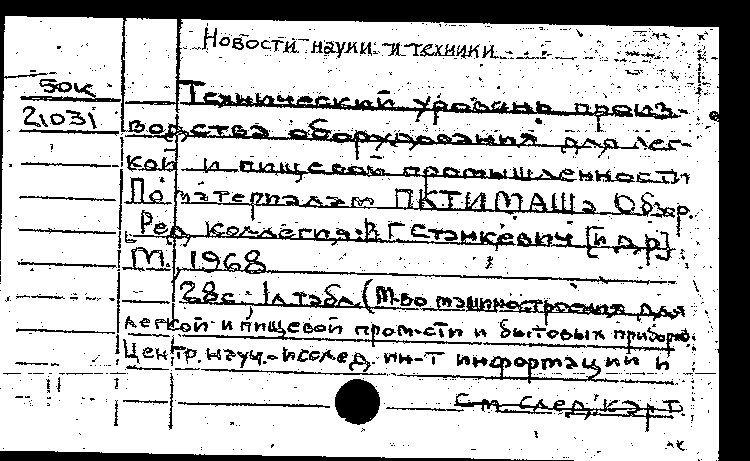 Новости науки и техники
50к
Технический уровень произ-
21031
водства оборудования для лег-
кой и пищевой промышленности
По материалам ПКТИМАШа Обзор.
[Ред. коллегия: В.Г. Станкевич [и др.]
М., 1968
28с.; 1л. табл. (М-во машиностроения для
легкой и пищевой пром-сти и бытовых приборов.
Центр. науч.-исслед. ин-т информации и
См. след. карт.